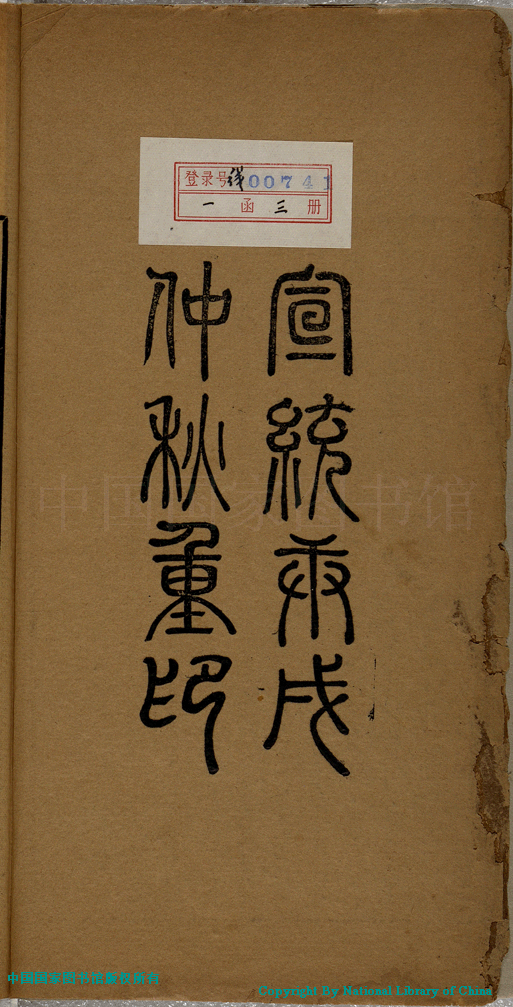 登录号 线00741
一函三册
宣統庚戌
仲秋重印
中国国家图书馆
中国国家图书馆版权所有
Copyright By National Library of China